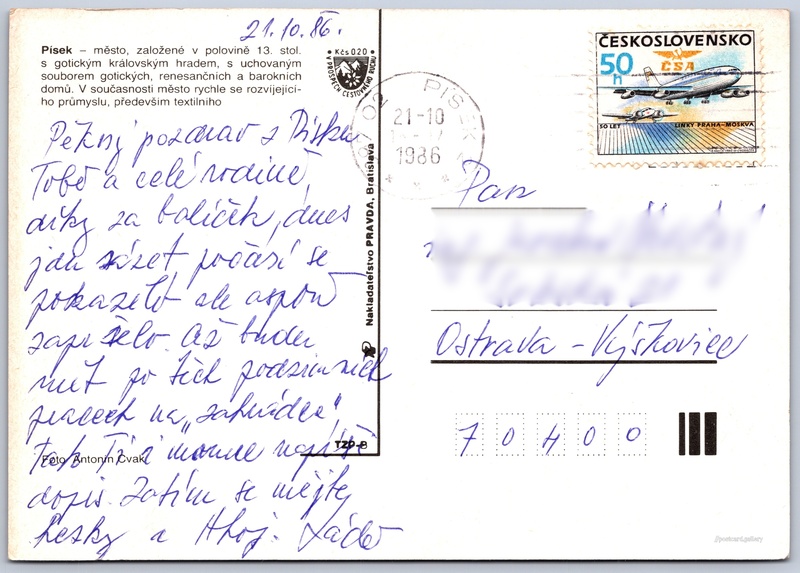 21.10.86.
Písek – město, založené v polovině 13. stol.
s gotickým královským hradem, s uchovaným
souborem gotických, renesančních a barokních
domů. V současnosti město rychle se rozvíjející-
ho průmyslu, především textilního
Kčs 020
V PROSPĚCH CESTOVNÍHO RUCHU
Pěkný pozdrav z Písku
Tobě a celé rodině,
díky za balíček, dnes
jdu sázet počasí se
pokazilo ale aspoň
zapršelo. Až budu
mít po těch podzimních
pracech na „zahrádce“
tak Ti i mamce napíše
dopis. Zatím se mějte
hezky a Ahoj. Láďo
Foto: Antonín Cvak
TZP-B
Nakladateľstvo PRAVDA, Bratislava
PÍSEK
21-10
1986
ČESKOSLOVENSKO
50 h
ČSA
50 LET LINKY PRAHA-MOSKVA
Pan
Ostrava - Výškovice
70400